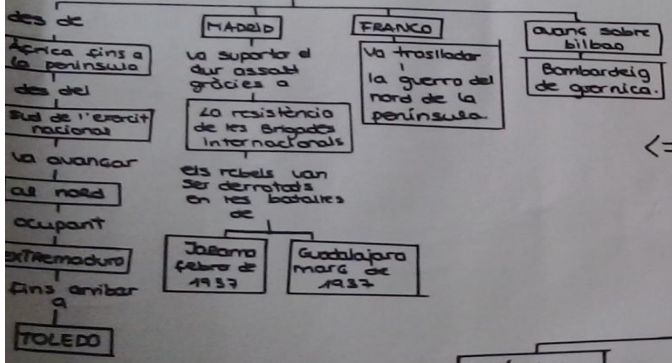 des de
Àfrica fins a
la península
des del
sud de l'exercit
nacional
va avançar
al nord
ocupant
EXTREMADURA
fins arribar
a
TOLEDO
MADRID
va suportar el
dur assalt
gràcies a
La resistència
de les Brigades
Internacionals
els rebels van
ser derrotats
en les batalles
de
Jarama
febrer de
1937
Guadalajara
març de
1937
FRANCO
va traslladar
la guerra del
nord de la
península.
avanç sobre
bilbao
Bombardeig
de guernica.
<=